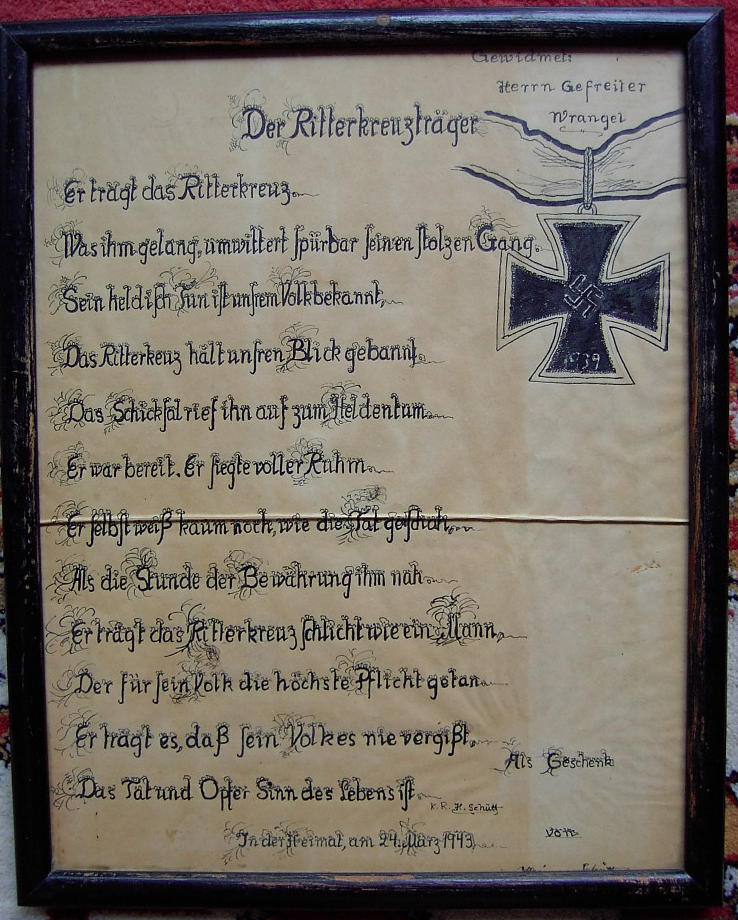 Gewidmet:
Herrn Gefreiter
Wrangel
Der Ritterkreuzträger
Er trägt das Ritterkreuz.
Was ihm gelang, umwittert spürbar seinen stolzen Gang.
Sein heldisch Tun ist unsrem Volk bekannt,
Das Ritterkeuz hält unsren Blick gebannt.
Das Schicksal rief ihn auf zum Heldentum.
Er war bereit. Er siegte voller Ruhm.
Er selbst weiß kaum noch, wie die Tat geschah,
Als die Stunde der Bewährung ihm nah.
Er trägt das Ritterkreuz schlicht wie ein Mann,
Der für sein Volk die höchste Pflicht getan.
Er trägt es, daß sein Volk es nie vergißt,
Das Tat und Opfer Sinn des Lebens ist.
K.R. H. Schütt
In der Heimat, am 24. März 1943.
Als Geschenk
von
1939